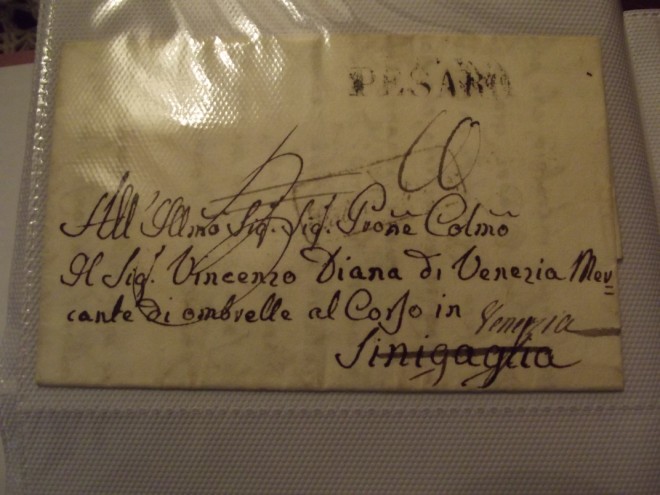 PESARO
All' Illmo Sig. Sig. Prone Colmo
Il Sigr. Vincenzo Diana di Venezia Mer
cante di ombrelle al Corso in
Venezia
Sinigaglia